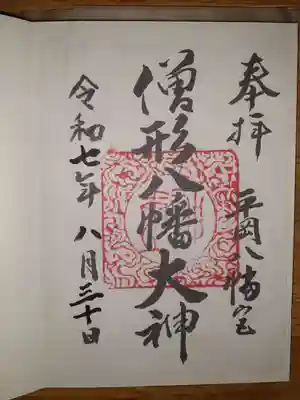 奉拝
平岡八幡宮
僧形八幡大神
令和七年 八月三十日